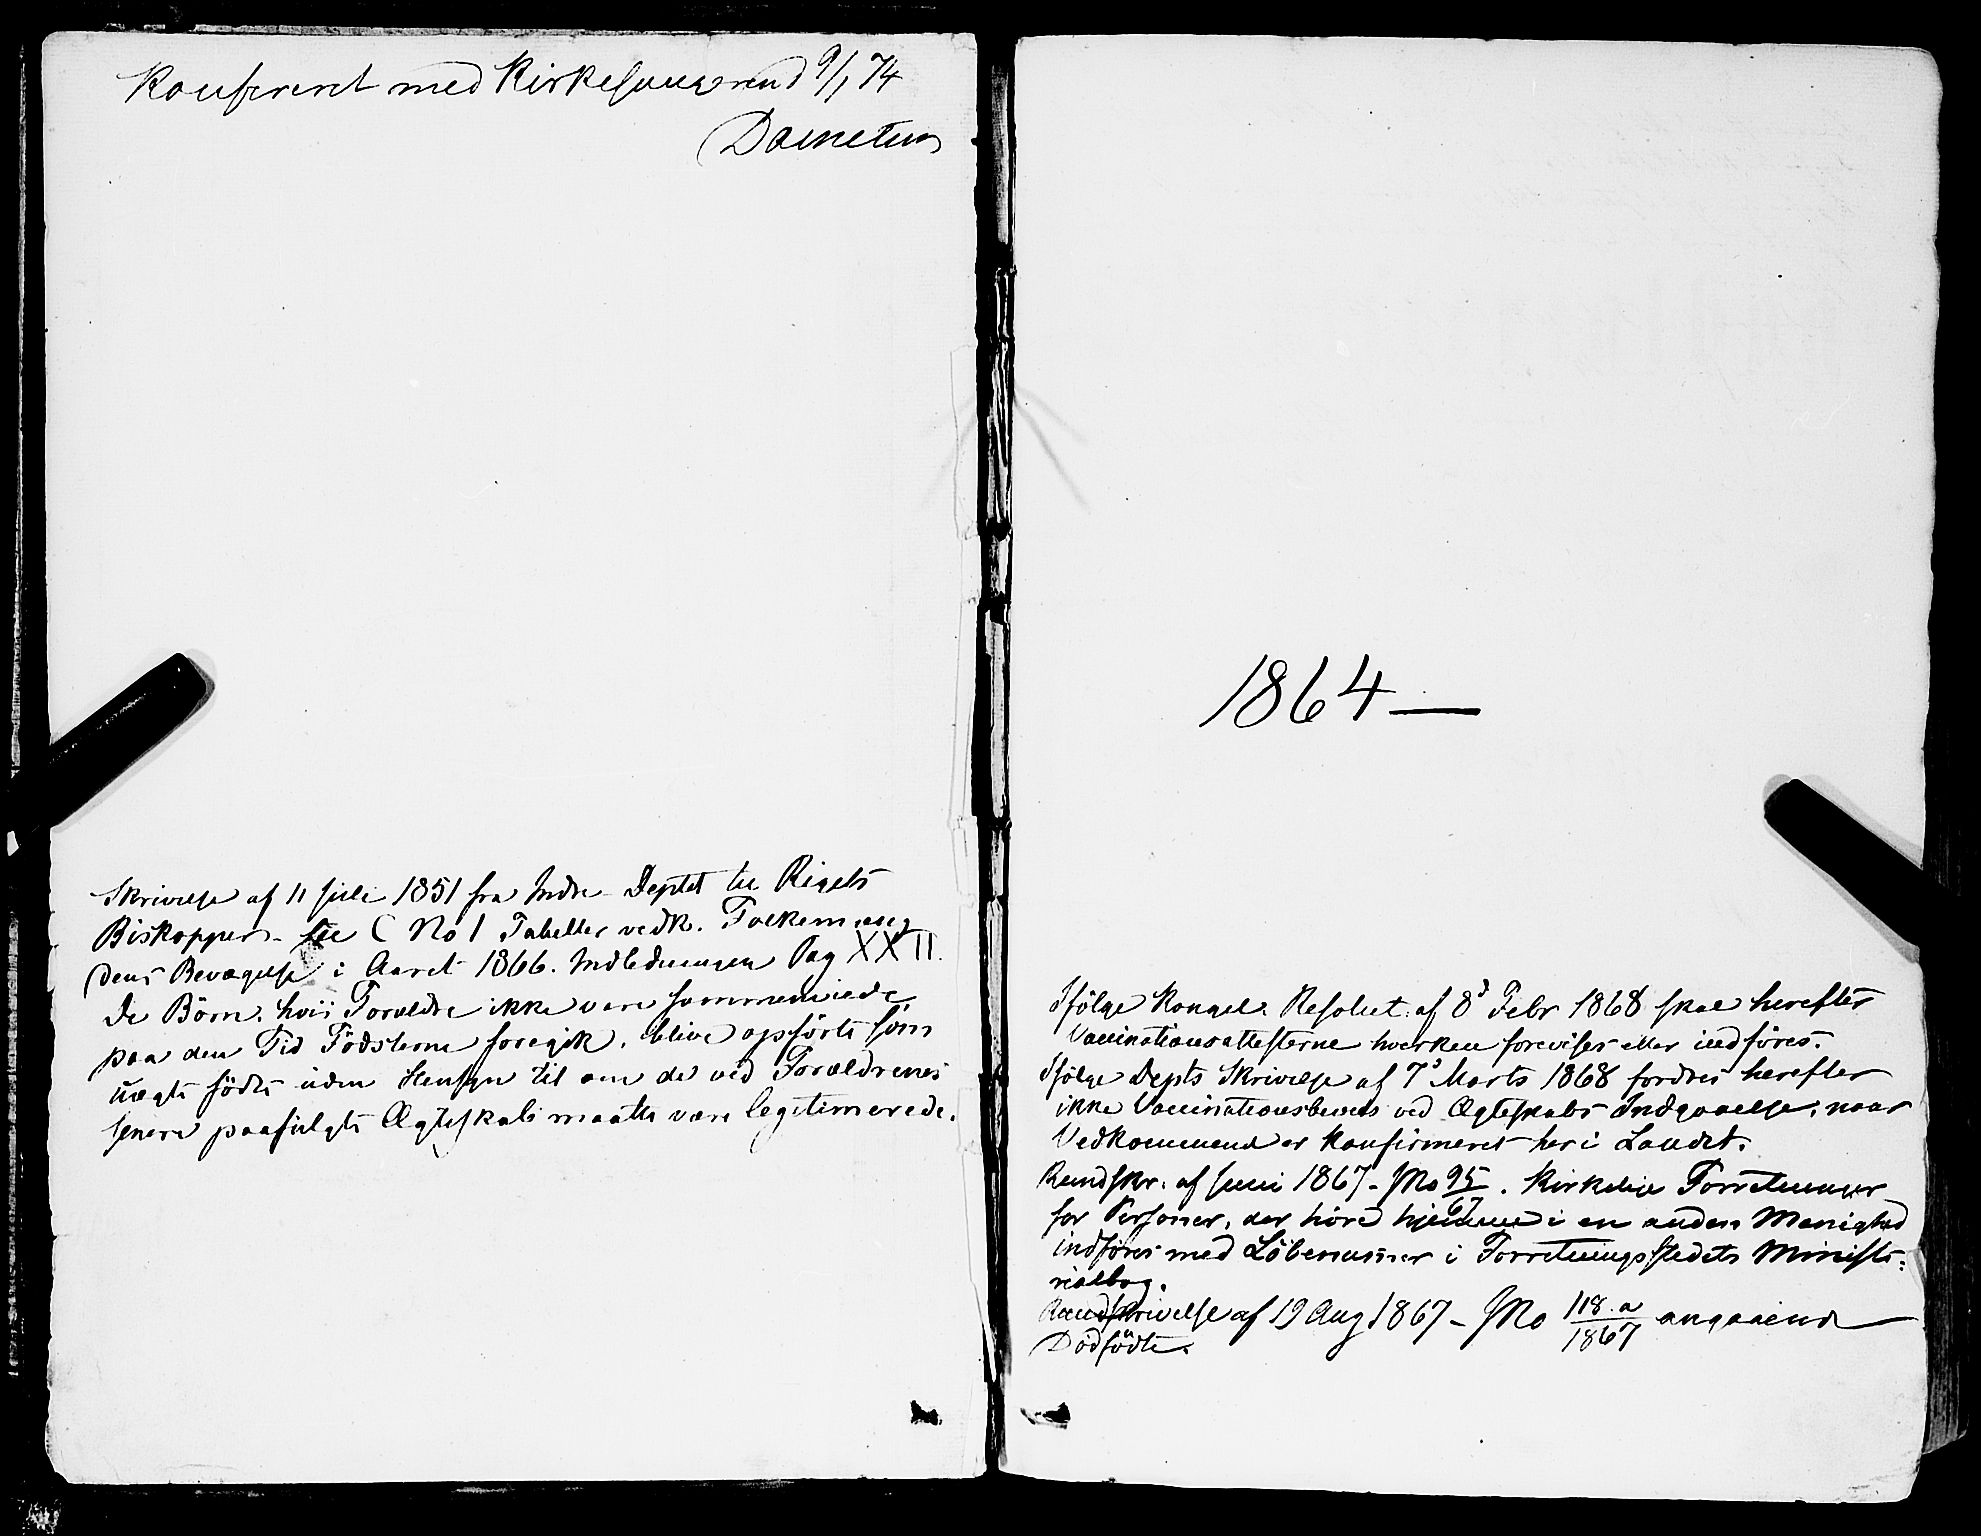 Konfereret med Kirkesangerens 9/1 74
Skrivelse af 11 Juli 1851 fra Indre Deptet til Rigets
Biskopper - see C No 1 Tabeller vedk. Folkemæng
dens Bevægelse i Aaret 1866. Indledningen Pag XXII.
De Börn, hvis Forældre ikke vare sammenviede
paa den Tid Födslerne foregik, blive opförte som
uægte födte uden Hensyn til om de ved Forældrenes
senere paafulgte Ægteskab maatte være legitimerede.
1864 —
Ifölge Kongel. Resolut. af 8d Febr 1868 skal herefter
Vaccinationsattesterne hverken forevises eller indföres.
Ifölge Depts Skrivelse af 7d Marts 1868 fordres herefter
ikke Vaccinationsbeviis ved Ægteskabs Indgaaelse, naar
Vedkommende er konfirmeret her i Landet.
Rundskr. af Juni 1867 - JNo 95/67. Kirkelige Forretninger
for Personer, der höre hjemme i en anden Menighed
indföres med Löbenummer i Forretningsstedets Ministe:
rialbog.
Rundskrivelse af 19 Aug 1867 - JNo 118.a/1867 angaaende
Dödfödte.